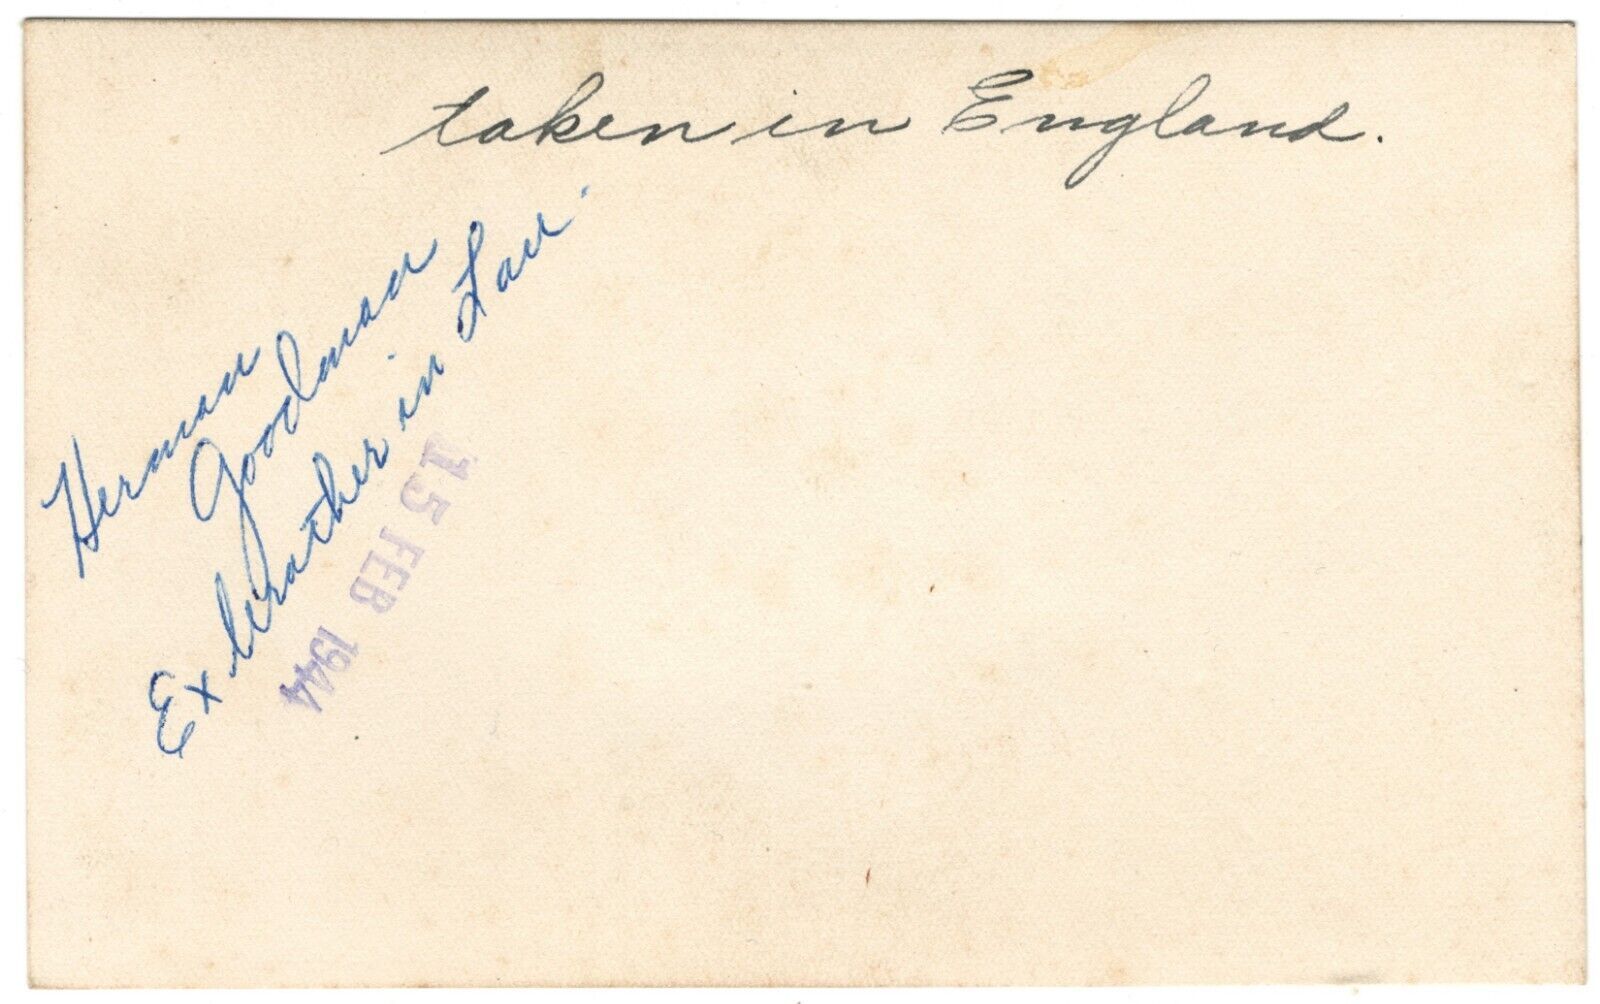 taken in England.
Herman
Goodman
Ex brother in Law.
15 FEB 1944